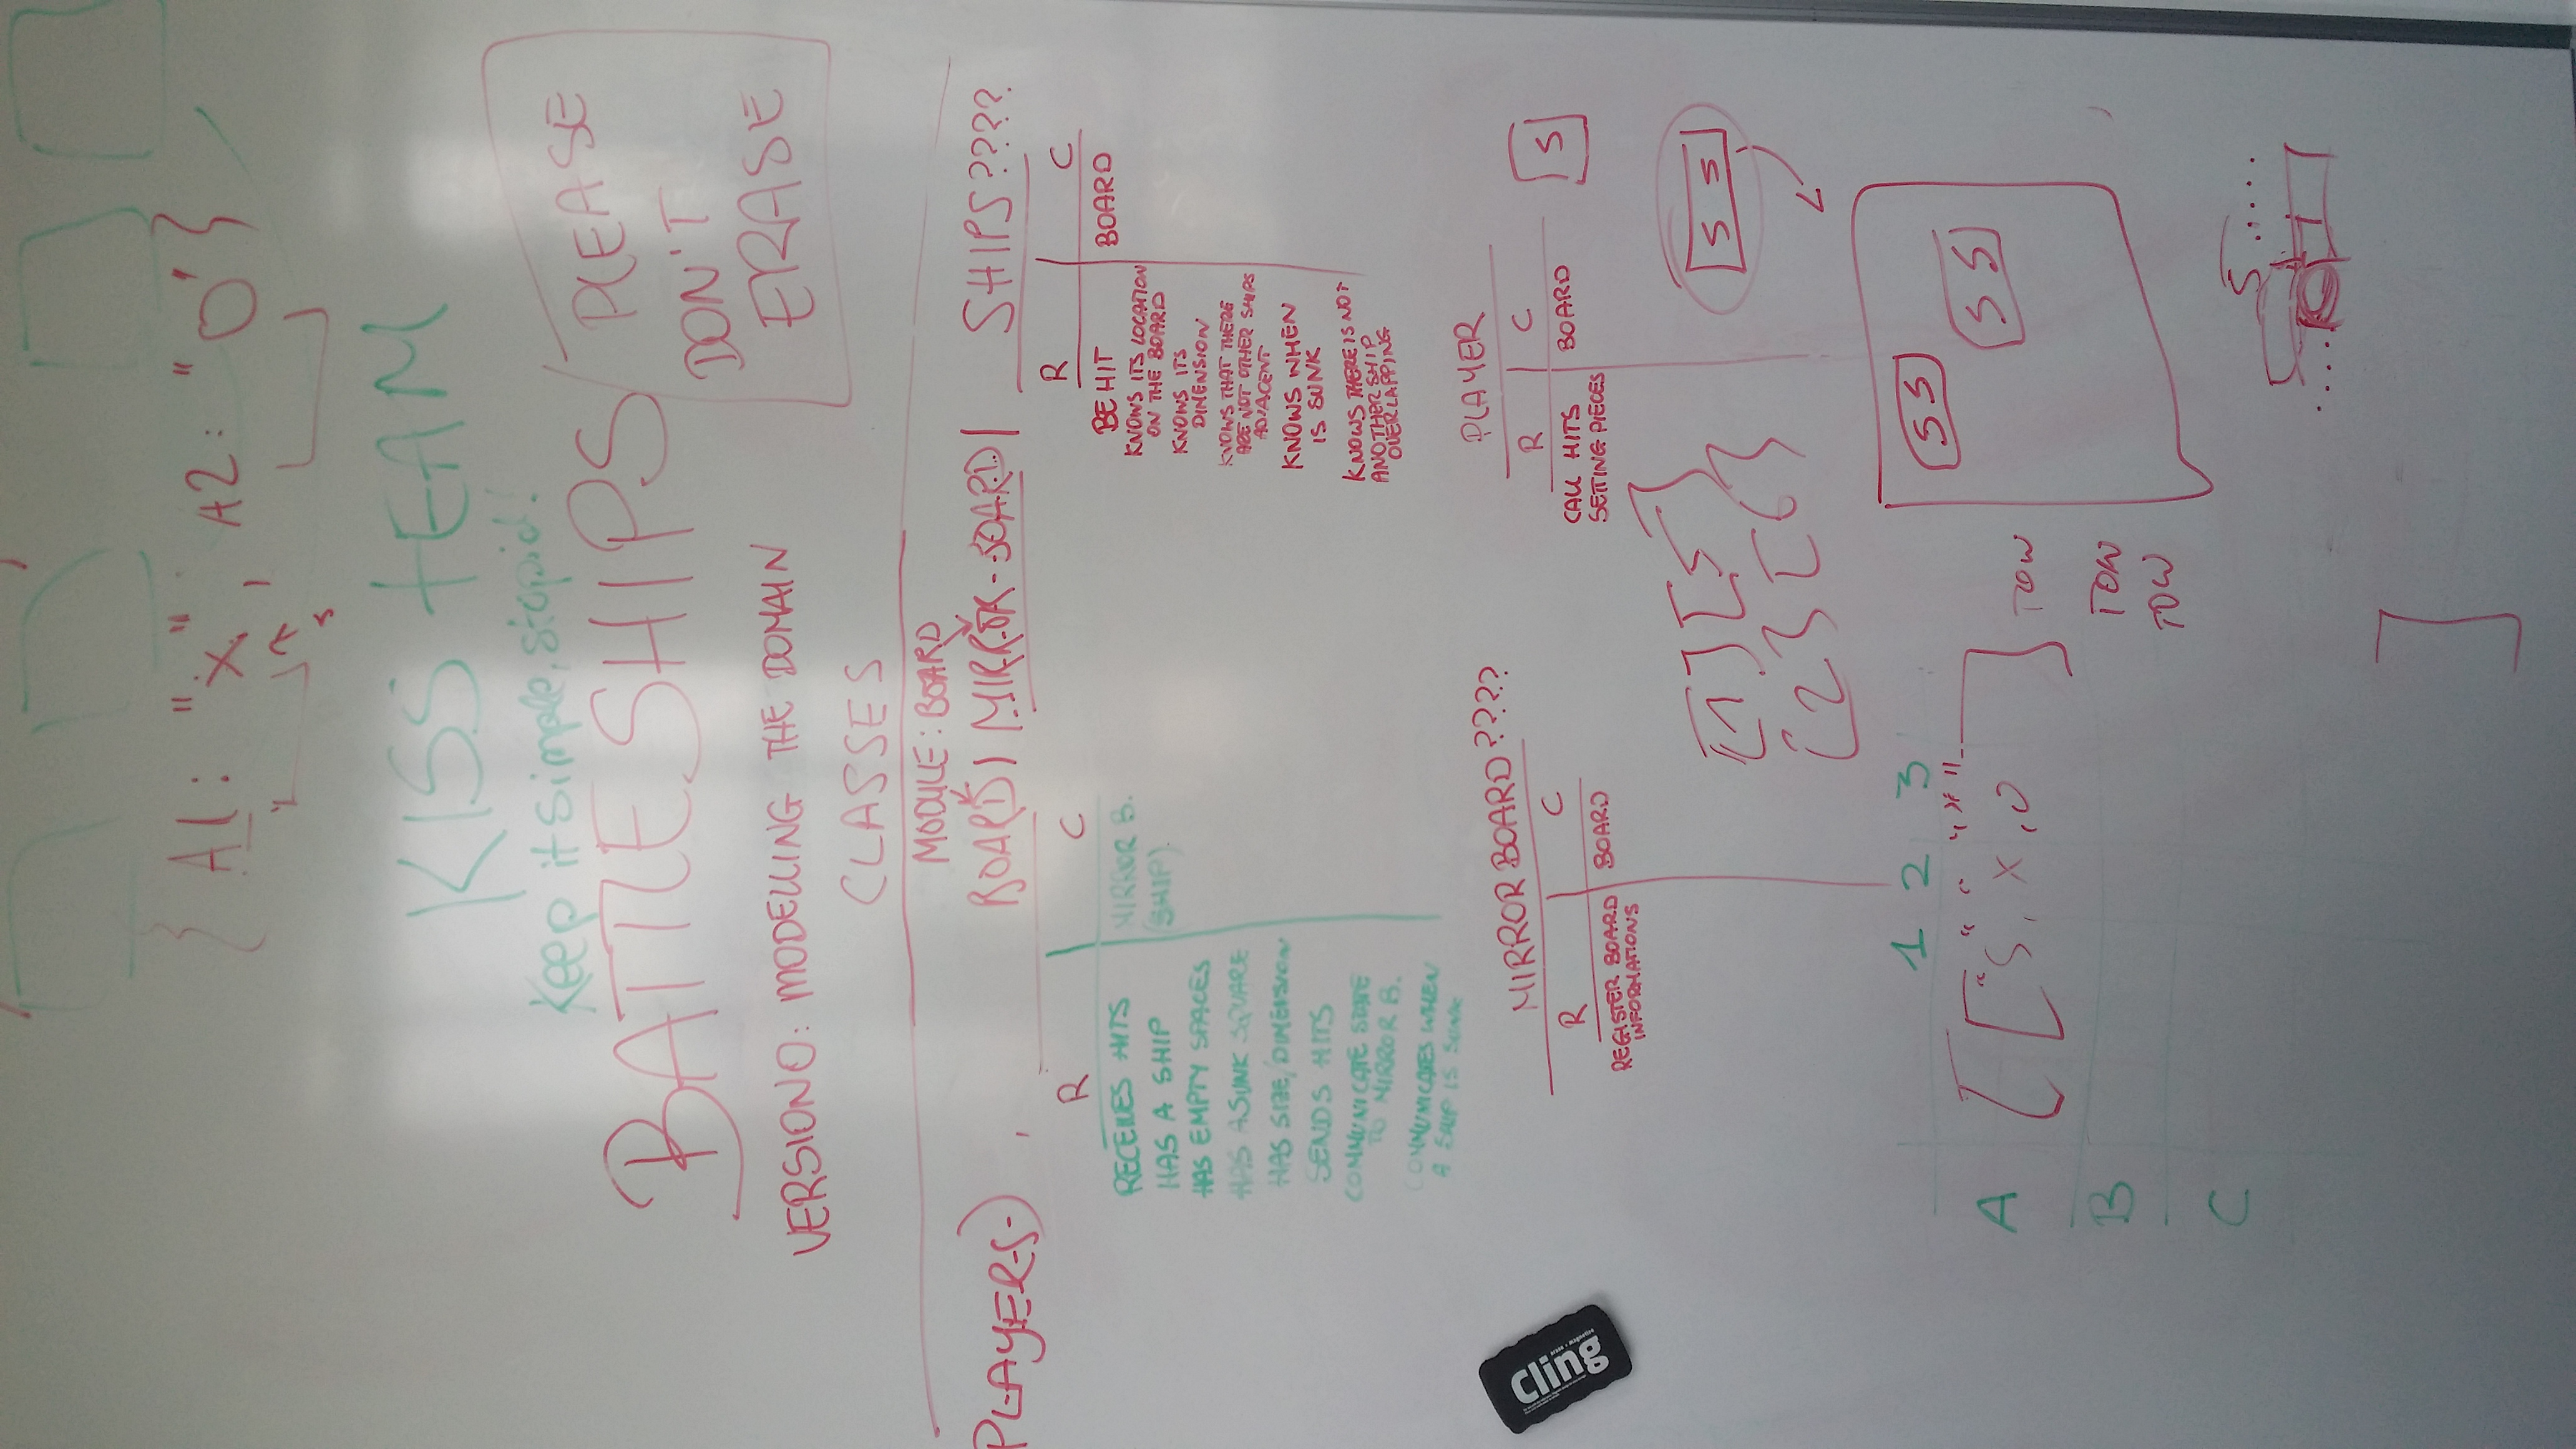 { A1: "X", A2: "O" }
S
KISS tEAM
Keep it simple, stupid!
BATTLESHIPS
PLEASE
DON'T
ERASE
VERSION 0: MODELLING THE DOMAIN
CLASSES
MODULE: BOARD
PLAYERS
BOARD | MIRROR-BOARD |
SHIPS????
R C
RECEIVES HITS
MIRROR B.
HAS A SHIP
(SHIP)
HAS EMPTY SPACES
HAS A SUNK SQUARE
HAS SIZE/DIMENSION
SENDS HITS
COMMUNICATE STATE
TO MIRROR B.
COMMUNICATES WHEN
A SHIP IS SUNK
R C
BE HIT
BOARD
KNOWS ITS LOCATION
ON THE BOARD
KNOWS ITS
DIMENSION
KNOWS THAT THERE
ARE NOT OTHER SHIPS
ADJACENT
KNOWS WHEN
IS SUNK
KNOWS THERE IS NOT
ANOTHER SHIP
OVERLAPPING
MIRROR BOARD????
R C
REGISTER BOARD
INFORMATIONS
BOARD
PLAYER
R C
CALL HITS
SETTING PIECES
BOARD
S
cling
[1] [5]
[2] [6]
S S
1 2 3
A [ ["S, X, O ] row
B row
row
C
SS
SS
S .....
....
]